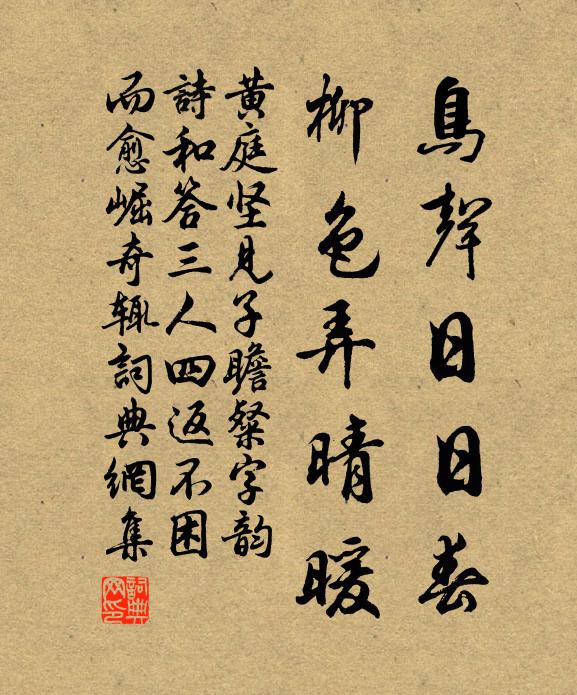 鳥聲日日春
柳色弄晴暖
黄庭坚見子瞻粲字韵
詩和答三人四返不困
而愈崛奇輒詞典網集
詞典网印